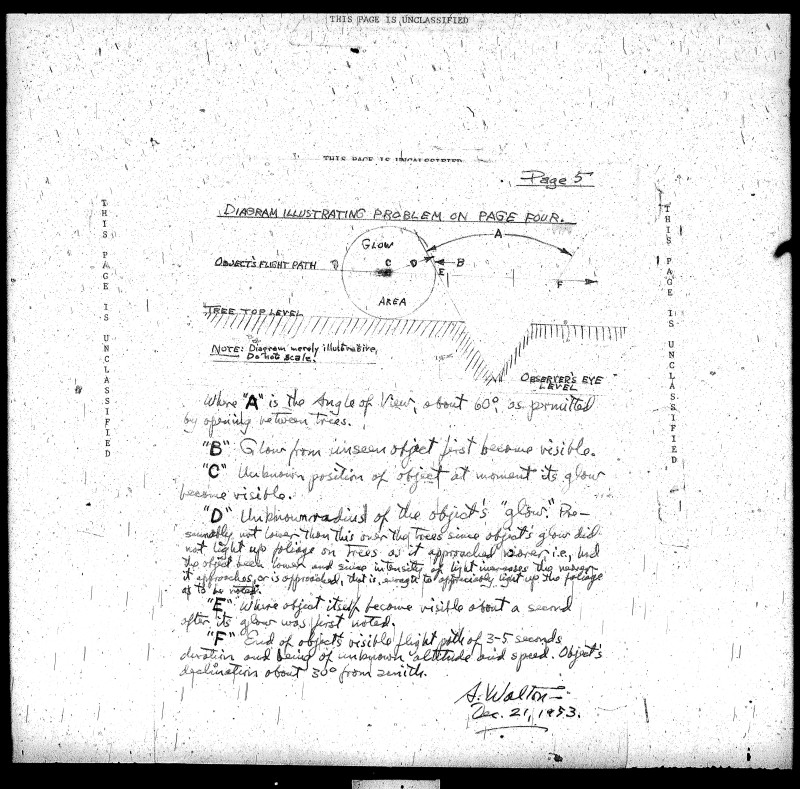 THIS PAGE IS UNCLASSIFIED
THIS PAGE IS UNCLASSIFIED
Page 5
DIAGRAM ILLUSTRATING PROBLEM ON PAGE FOUR.
A
GLOW
OBJECT'S FLIGHT PATH
C D B
E
F
AREA
TREE TOP LEVEL
NOTE: Diagram merely illustrative,
Do not scale.
OBSERVER'S EYE
LEVEL
Where "A" is the Angle of View, about 60°, as permitted
by opening between trees.
"B" Glow from unseen object first become visible.
"C" Unknown position of object at moment its glow
become visible.
"D" Unknown radius of the object's "glow." Pre-
sumably not lower than this over the trees since object's glow did
not light up foliage on trees as it approached nearer i.e., had
the object been lower and since intensity of light increases the nearer
it approaches, or is approached, that is, enough to appreciably light up the foliage
as to be noted.
"E" Where object itself become visible about a second
after its glow was first noted.
"F" End of object's visible flight path of 3-5 seconds
duration and being of unknown altitude and speed. Object's
declination about 30° from zenith.
A. Walton
Dec. 21, 1953.
THIS PAGE IS UNCLASSIFIED
THIS PAGE IS UNCLASSIFIED